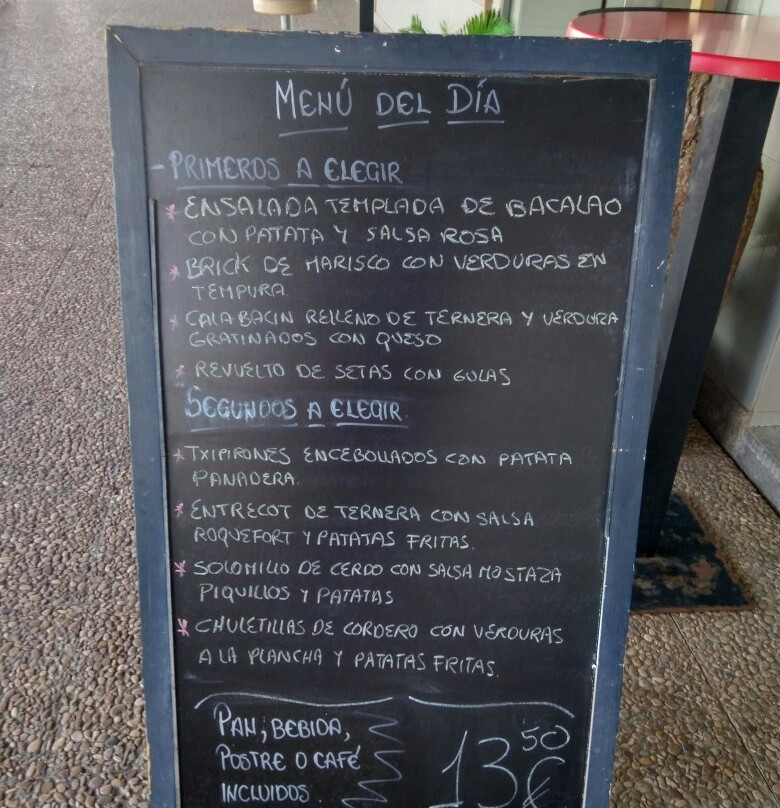 MENÚ DEL DÍA
- PRIMEROS A ELEGIR
* ENSALADA TEMPLADA DE BACALAO
CON PATATA Y SALSA ROSA
* BRICK DE MARISCO CON VERDURAS EN
TEMPURA.
* CALABACIN RELLENO DE TERNERA Y VERDURA
GRATINADOS CON QUESO
* REVUELTO DE SETAS CON GULAS
SEGUNDOS A ELEGIR.
* TXIPIRONES ENCEBOLLADOS CON PATATA
PANADERA.
* ENTRECOT DE TERNERA CON SALSA
ROQUEFORT Y PATATAS FRITAS.
* SOLOMILLO DE CERDO CON SALSA MOSTAZA
PIQUILLOS Y PATATAS
* CHULETILLAS DE CORDERO CON VERDURAS
A LA PLANCHA Y PATATAS FRITAS.
PAN, BEBIDA,
POSTRE O CAFÉ
INCLUIDOS.
13,50 €